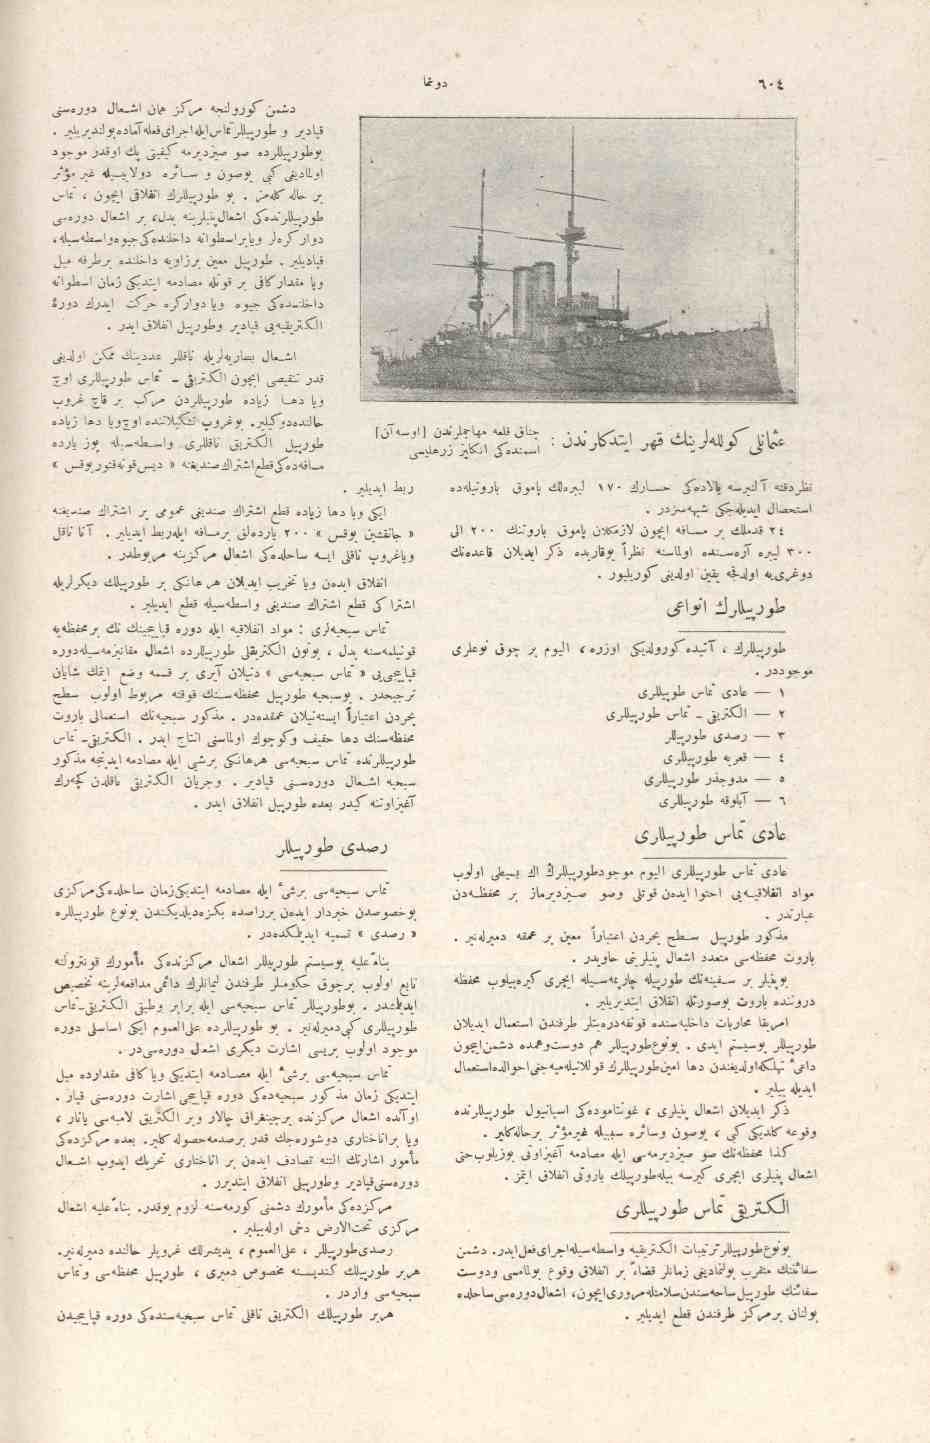 ٦٠٤
دونما
عثمانلی کولله‌لرینك قهر ایتدکارندن :
چناق قلعه مهاجملرندن [اوسه‌آن]
اسمنده‌کی انکلیز زرهلیسی
نظردقته آلنیرسه بالاده‌کی حسارك ١٧٠ لیبره‌لك پاموق باروتیله‌ده
استحصال ایدیله‌جکی شبهه‌سزدر .
٢٤ قدملك بر مسافه ایچون لازمکلان پاموق باروتنك ٢٠٠ الی
٣٠٠ لیبره آره‌سنده اولماسنه نظراً یوقاریده ذکر ایدیلان قاعده‌نك
دوغری‌یه اولدقجه یقین اولدیغی کوریلیور .
طورپیللرك انواعی
طورپیللرك ، آتیده کورولدیکی اوزره ، الیوم بر چوق نوعلری
موجوددر .
١ — عادی تماس طوپیللری
٢ — الکتریقی ـ تماس طورپیللری
٣ — رصدی طورپیللر
٤ — قعریه طورپیللری
٥ — مدوجذر طورپیللری
٦ — آبلوقه طورپیللری
عادی تماس طورپیللری
عادی تماس طورپیللری الیوم موجودطورپیللرك اك بسیطی اولوب
مواد انفلاقیه‌یی احتوا ایده‌ن قوتلی وصو صیزدیرماز بر محفظه‌دن
عبارتدر .
مذکور طورپیل سطح بحردن اعتباراً معین بر عمقه دمیرله‌نیر .
باروت محفظه‌سی متعدد اشعال پیلرینی حاویدر .
بوپیللر بر سفینه‌نك طورپیله چارپمه‌سیله ایچری کیره‌بیلوب محفظه
دروننده باروت بوصورتله انفلاق ایتدیریلیر .
امریقا محاربات داخلیه‌سنده قونفه‌دره‌یتلر طرفندن استعمال ایدیلان
طورپیللر بوسیستم ایدی . بونوع‌طورپیللر هم دوست‌وهمده دشمن‌ایچون
داعیٔ تهلکه‌اولدیغندن دها امین‌طورپیللرك قوللانیله‌میه‌جغی‌احوالده‌استعمال
ایدیله بیلیر .
ذکر ایدیلان اشعال پیلری ، غونتاموده‌کی اسپانیول طورپیللرنده
وقوعه کلدیکی کبی ، یوصون وسائره سببیله غیرمؤثر برحاله‌کلیر .
کذا محفظه‌نك صو صیزدیرمه‌سی ایله مصادمه آغیزاوتی بوزیلوب‌حتی
اشعال پیلری ایچری کیرسه بیله‌طورپیلك باروتی انفلاق ایتمز .
الکتریقی تماس طورپیللری
بونوع‌طورپیللر ترتیبات الکتریقیه واسطه‌سیله‌اجرای‌فعل‌ایدر . دشمن
سفائننك متقرب بولنمادیغی زمانلر قضاءً بر انفلاق وقوع بولماسی ودوست
سفائنك طورپیل‌ساحه‌سندن‌سلامتله‌مروری‌ایچون، اشعال‌دوره‌سی‌ساحلده
بولنان برمرکز طرفندن قطع ایدیلیر .
دشمن کورولنجه مرکز همان اشعال دوره‌سنی
قپادیر و طورپیللر تماس‌ایله‌اجرای‌فعله‌آماده‌بولندیریلیر .
بوطورپیللرده صو صیزدیرمه کیفیتی پك اوقدر موجود
اولمادیغی کبی یوصون و سائره دولایسیله غیر مؤثر
بر حاله کله‌مز . بو طورپیللرك انفلاقی ایچون ، تماس
طورپیللرنده‌کی اشعال‌پیلرینه بدل، بر اشعال دوره‌سی
دوار کره‌لر ویابراسطوانه داخلنده‌کی‌جیوه‌واسطه‌سیله،
قپادیلیر . طورپیل معین برزاویه داخلنده برطرفه میل
ویا مقدارکافی بر قوتله مصادمه ایتدیکی زمان اسطوانه
داخلنده‌کی جیوه ویادوارکره حرکت ایدرك دورهٔ
الکتریقیه‌یی قپادیر وطورپیل انفلاق ایدر .
اشعال بطاریه‌لریله ناقللر عددینك ممکن اولدیغی
قدر تنقیصی ایچون الکتریقی ـ تماس طورپیللری اوچ
ویا دها زیاده طورپیللردن مرکب بر قاچ غروپ
حالنده‌دوکیلیر. بوغروپ تشکیلاتنده اوچ‌ویا دها زیاده
طورپیل الکتریق ناقللری واسطه‌سیله یوز یارده
مسافه‌ده‌کی‌قطع‌اشتراك صندیغنه « دیس‌قونه‌قتوربوقس »
ربط ایدیلیر .
ایکی ویا دها زیاده قطع اشتراك صندیغی عمومی بر اشتراك صندیغنه
« جانقشین بوقس » ٢٠٠ یارده‌لق برمسافه ایله‌ربط ایدیلیر . آنا ناقل
ویاغروپ ناقلی ایسه ساحلده‌کی اشعال مرکزینه مربوطدر .
انفلاق ایده‌ن ویا تخریب ایدیلان هر هانکی بر طورپیلك دیکرلریله
اشترا کی قطع اشتراك صندیغی واسطه‌سیله قطع ایدیلیر .
تماس سبحیه‌لری : مواد انفلاقیه ایله دوره قپاییجینك تك برمحفظه‌یه
قونیلمه‌سنه بدل ، بوتون الکتریقلی طورپیللرده اشعال مقانیزمه‌سیله‌دوره
قپاییجی‌یی « تماس سبحیه‌سی » دنیلان آیری بر قسمه وضع ایتمك شایان
ترجیحدر . بوسبحیه طورپیل محفظه‌سنك فوقنه مربوط اولوب سطح
بحردن اعتباراً ایسته‌نیلان عمقده‌در . مذکور سبحیه‌نك استعمالی باروت
محفظه‌سنك دها خفیف وکوچوك اولماسنی انتاج ایدر . الکتریقی‌ـ‌تماس
طورپیللرنده تماس سبحیه‌سی هرهانکی برشیی ایله مصادمه ایدینجه مذکور
سبحیه اشعال دوره‌سنی قپادیر . وجریان الکتریقی ناقلدن کچه‌رك
آغیزاوتنه کیدر بعده طورپیل انفلاق ایدر .
رصدی طورپیللر
تماس سبحیه‌سی برشیٔ ایله مصادمه ایتدیکی‌زمان ساحلده‌کی‌مرکزی
بوخصوصدن خبردار ایده‌ن برراصده بکزه‌دیلدیکندن بونوع طورپیللره
« رصدی » تسمیه ایدیلمکده‌در .
بناءً علیه بوسیستم طورپیللر اشعال مرکزنده‌کی مأمورك قونترولنه
تابع اولوب برچوق حکومتلر طرفندن لیمانلرك دائمی مدافعه‌لرینه تخصیص
ایدیلمشدر . بوطورپیللر تماس سبحیه‌سی ایله برابر وطبقی الکتریقی‌ـ‌تماس
طورپیللری کبی‌دمیرله‌نیر . بو طورپیللرده علی‌العموم ایکی اساسلی دوره
موجود اولوب بریسی اشارت دیکری اشعال دوره‌سی‌در .
تماس سبحیه‌سی برشیٔ ایله مصادمه ایتدیکی ویاکافی مقدارده میل
ایتدیکی زمان مذکور سبحیه‌ده‌کی دوره قپاییجی اشارت دوره‌سنی قپار .
اوآنده اشعال مرکزنده برچینغراق چالار وبر الکتریق لامبه‌سی یانار ،
ویا براناختاری دوشوره‌جك قدر برصدمه‌حصوله کلیر. بعده مرکزده‌کی
مأمور اشارتك التنه تصادف ایده‌ن بر اناختاری تحریك ایدوب اشعال
دوره‌سنی‌قپادیر وطورپیلی انفلاق ایتدیرر .
مرکزده‌کی مأمورك دشمنی کورمه‌سنه لزوم یوقدر. بناءً علیه اشعال
مرکزی تحت‌الارض دخی اوله‌بیلیر .
رصدی‌طورپیللر ، علی‌العموم ، یدیشرلك غروپلر حالنده دمیرله‌نیر.
هربر طورپیلك کندیسنه مخصوص دمیری ، طورپیل محفظه‌سی وتماس
سبحیه‌سی واردر .
هربر طورپیلك الکتریق ناقلی تماس سبحیه‌سنده‌کی دوره قپاییجیدن